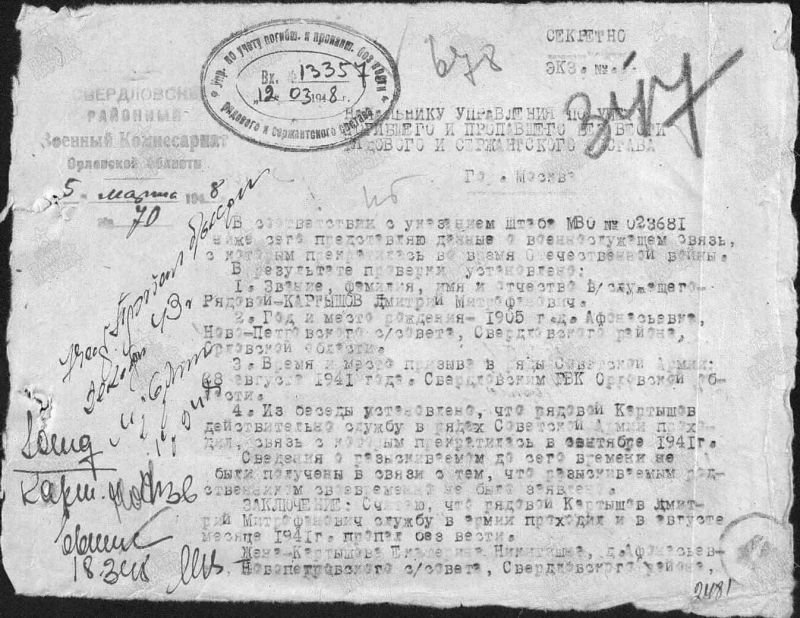 678
СЕКРЕТНО
ЭКЗ. №
Упр. по учету погибш. и пропавш. без вести
Вх. 13357
"12" 03 1948 г.
рядового и сержантского состава
СВЕРДЛОВСКИЙ
РАЙОННЫЙ
Военный Комиссариат
Орловской Области
5 марта 1948
№ 70
НАЧАЛЬНИКУ УПРАВЛЕНИЯ ПО
ПОГИБШЕГО И ПРОПАВШЕГО БЕЗ ВЕСТИ
РЯДОВОГО И СЕРЖАНТСКОГО СОСТАВА
Гор. Москва
В соответствии с указанием Штаба МВО № 023681
ниже сего представляю данные о военнослужащем связь,
с которым прекратилась во время Отечественной войны.
В результате проверки установлено:
1. Звание, фамилия, имя и отчество в/служащего-
Рядовой-КАРТЫШОВ Дмитрий Митрофанович.
2. Год и место рождения- 1905 г.д. Афонасьевка,
Ново-Петровского с/совета, Свердловского района,
Орловской области.
3. Время и место призыва в ряды Советской Армии:
28 августа 1941 года. Свердловским РВК Орловской об-
ласти.
4. Из беседы установлено, что рядовой Картышов
действительно службу в рядах Советской Армии прохо-
дил, связь с которым прекратилась в сентябре 1941г.
Сведения о разыскиваемом до сего времени не
были получены в связи с тем, что разыскиваемым род-
ственником своевременно не было заявлено.
ЗАКЛЮЧЕНИЕ: Считаю, что рядовой Картышов Дмит-
рий Митрофанович службу в армии проходил и в августе
месяце 1941г. пропал без вести.
Жена-Картышова Екатерина Никитишна, д. Афонасьев-
ка, Новопетровского с/совета, Свердловского района,
43 г
18.3.48
2481